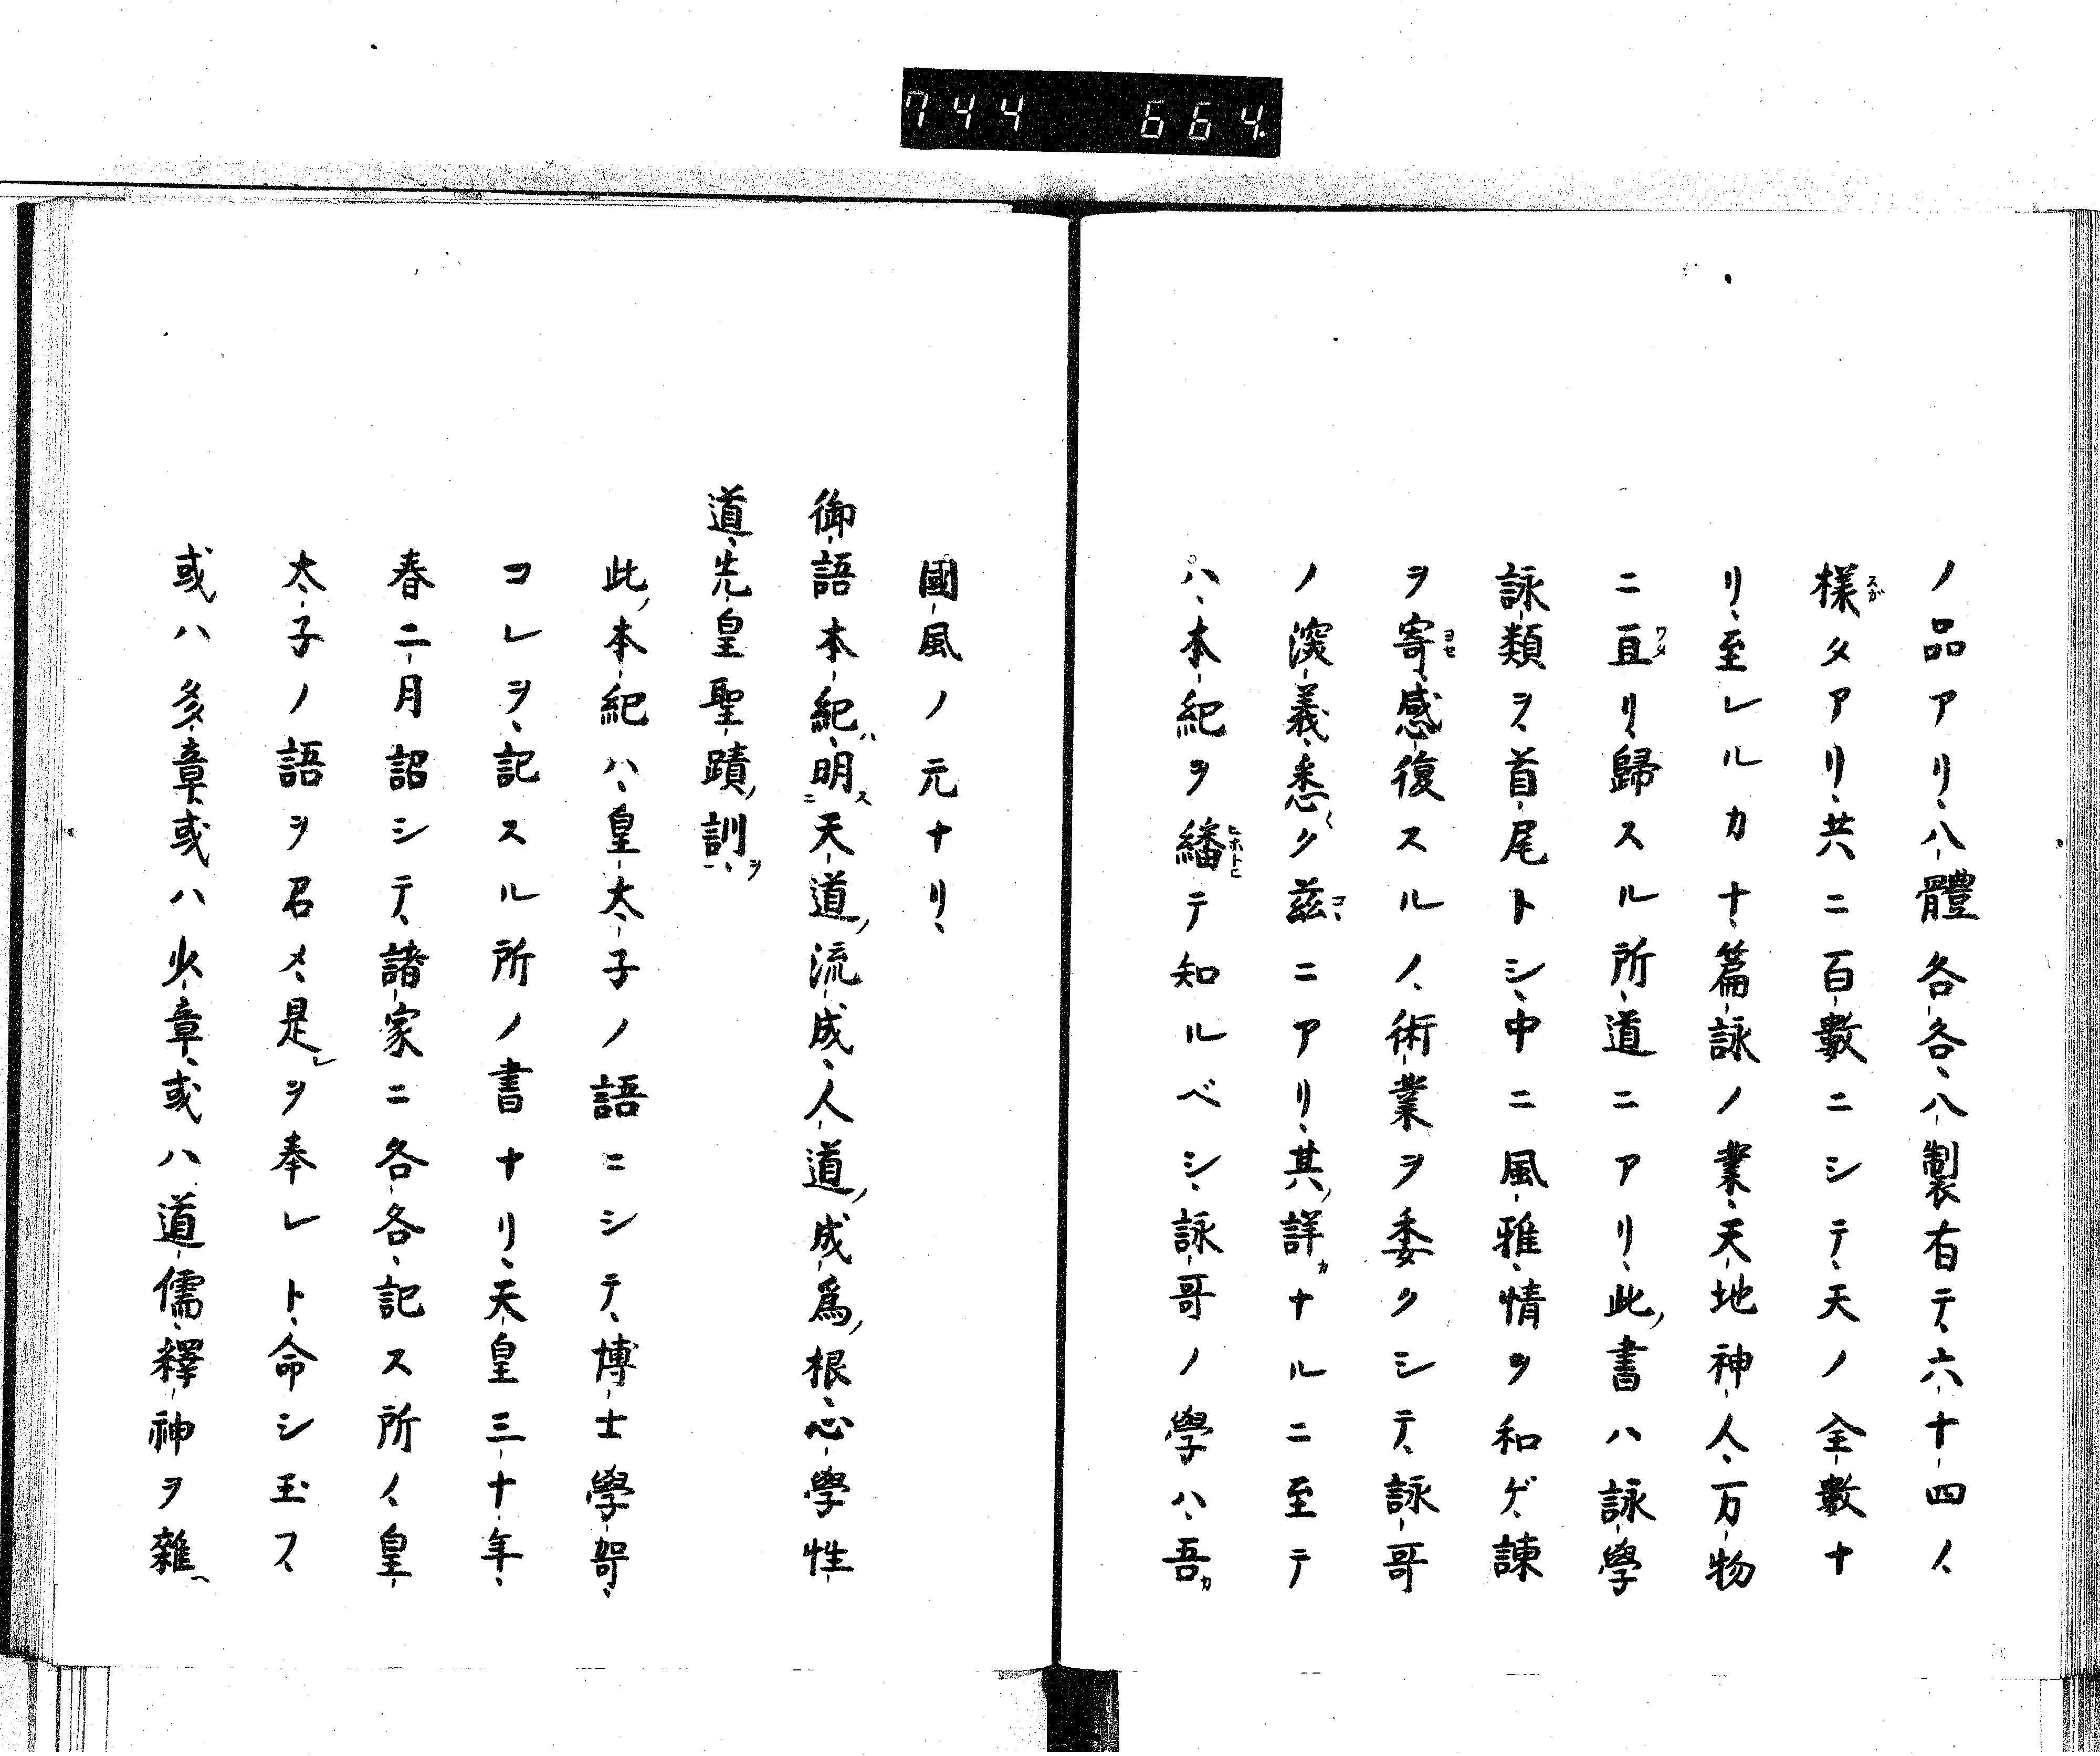 744 664.
ノ品アリ、八體各各、八製有テ、六十四ノ、
樣タアリ、共ニ百數ニシテ、天ノ全數ナ
リ、至レルカナ、篇詠ノ業、天地神人、万物
ニ亘リ、歸スル所、道ニアリ、此ノ書ハ詠學
詠類ヲ、首尾トシ、中ニ風雅、情ヲ和ゲ、諫
ヲ寄、感復スルノ、術業ヲ委クシテ、詠哥
ノ深義、悉ク茲ニアリ、其ノ詳ナルニ至テ
ハ、本紀ヲ繙テ知ルベシ、詠哥ノ學ハ、吾カ
國風ノ元ナリ、
御語本紀ハ、明ス二天道ノ、流成、人道ノ、成爲ノ、根、心學性
道、先皇聖蹟ノ、訓ヲ一、
此ノ本紀ハ、皇太子ノ語ニシテ、博士學哿、
コレヲ、記スル所ノ書ナリ、天皇三十年、
春二月詔シテ、諸家ニ各各、記ス所ノ、皇
太子ノ語ヲ召メ、是レヲ奉レト、命シ玉フ、
或ハ多章、或ハ少章、或ハ道儒、釋神ヲ雜ヘ